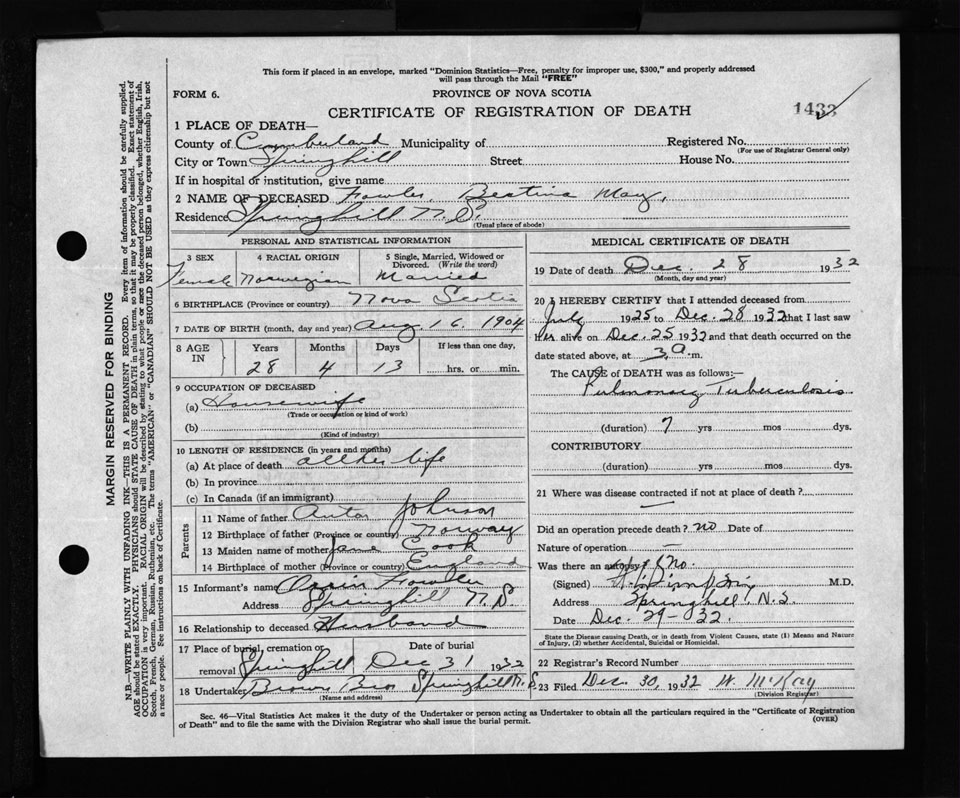 This form if placed in an envelope, marked "Dominion Statistics—Free, penalty for improper use, $300," and properly addressed
will pass through the Mail "FREE"
FORM 6.
PROVINCE OF NOVA SCOTIA
CERTIFICATE OF REGISTRATION OF DEATH
1432
1 PLACE OF DEATH—
County of Cumberland Municipality of Registered No.
(For use of Registrar General only)
City or Town Springhill Street House No.
If in hospital or institution, give name
2 NAME OF DECEASED Fowler, Beatrice May,
Residence Springhill N.S.
(Usual place of abode)
PERSONAL AND STATISTICAL INFORMATION
3 SEX 4 RACIAL ORIGIN 5 Single, Married, Widowed or Divorced. (Write the word)
Female Norwegian Married
6 BIRTHPLACE (Province or country) Nova Scotia
7 DATE OF BIRTH (month, day and year) Aug. 16. 1904
8 AGE IN Years Months Days If less than one day,
28 4 13 hrs. or min.
9 OCCUPATION OF DECEASED
(a) Housewife
(Trade or occupation or kind of work)
(b)
(Kind of industry)
10 LENGTH OF RESIDENCE (in years and months)
(a) At place of death all her life
(b) In province
(c) In Canada (if an immigrant)
Parents
11 Name of father Anton Johnson
12 Birthplace of father (Province or country) Norway
13 Maiden name of mother Jane Cook
14 Birthplace of mother (Province or country) England
15 Informant's name Fowler
Address Springhill N.S
16 Relationship to deceased Husband
17 Place of burial, cremation or Date of burial
removal Springhill Dec 31 1932
18 Undertaker Brown Bro Springhill N.S.
(Name and address)
MEDICAL CERTIFICATE OF DEATH
19 Date of death Dec. 28 1932
(Month, day and year)
20 I HEREBY CERTIFY that I attended deceased from
July 1925 to Dec. 28 1932 that I last saw
her alive on Dec. 25 1932 and that death occurred on the
date stated above, at 3 a. m.
The CAUSE of DEATH was as follows:—
Pulmonary Tuberculosis
(duration) 7 yrs mos dys.
CONTRIBUTORY
(duration) yrs. mos. dys.
21 Where was disease contracted if not at place of death?
—
Did an operation precede death? no Date of
Nature of operation —
Was there an autopsy? no.
(Signed) M.D.
Address Springhill, N.S.
Date Dec. 29-032.
State the Disease causing Death, or in death from Violent Causes, state (1) Means and Nature
of Injury, (2) whether Accidental, Suicidal or Homicidal.
22 Registrar's Record Number
23 Filed Dec. 30, 1932 W. McKay
(Division Registrar)
Sec. 46—Vital Statistics Act makes it the duty of the Undertaker or person acting as Undertaker to obtain all the particulars required in the "Certificate of Registration
of Death" and to file the same with the Division Registrar who shall issue the burial permit.
(OVER)
MARGIN RESERVED FOR BINDING
N.B.—WRITE PLAINLY WITH UNFADING INK—THIS IS A PERMANENT RECORD. Every item of information should be carefully supplied.
AGE should be stated EXACTLY. PHYSICIANS should STATE CAUSE OF DEATH in plain terms, so that it may be properly classified. Exact statement of
OCCUPATION is very important. RACIAL ORIGIN will be described by stating to what people or race the deceased person belonged, whether English, Irish,
Scotch, French, German, Russian, Ruthenian, etc. The terms "AMERICAN" or "CANADIAN" SHOULD NOT BE USED as they express citizenship but not
a race or people. See instructions on back of Certificate.